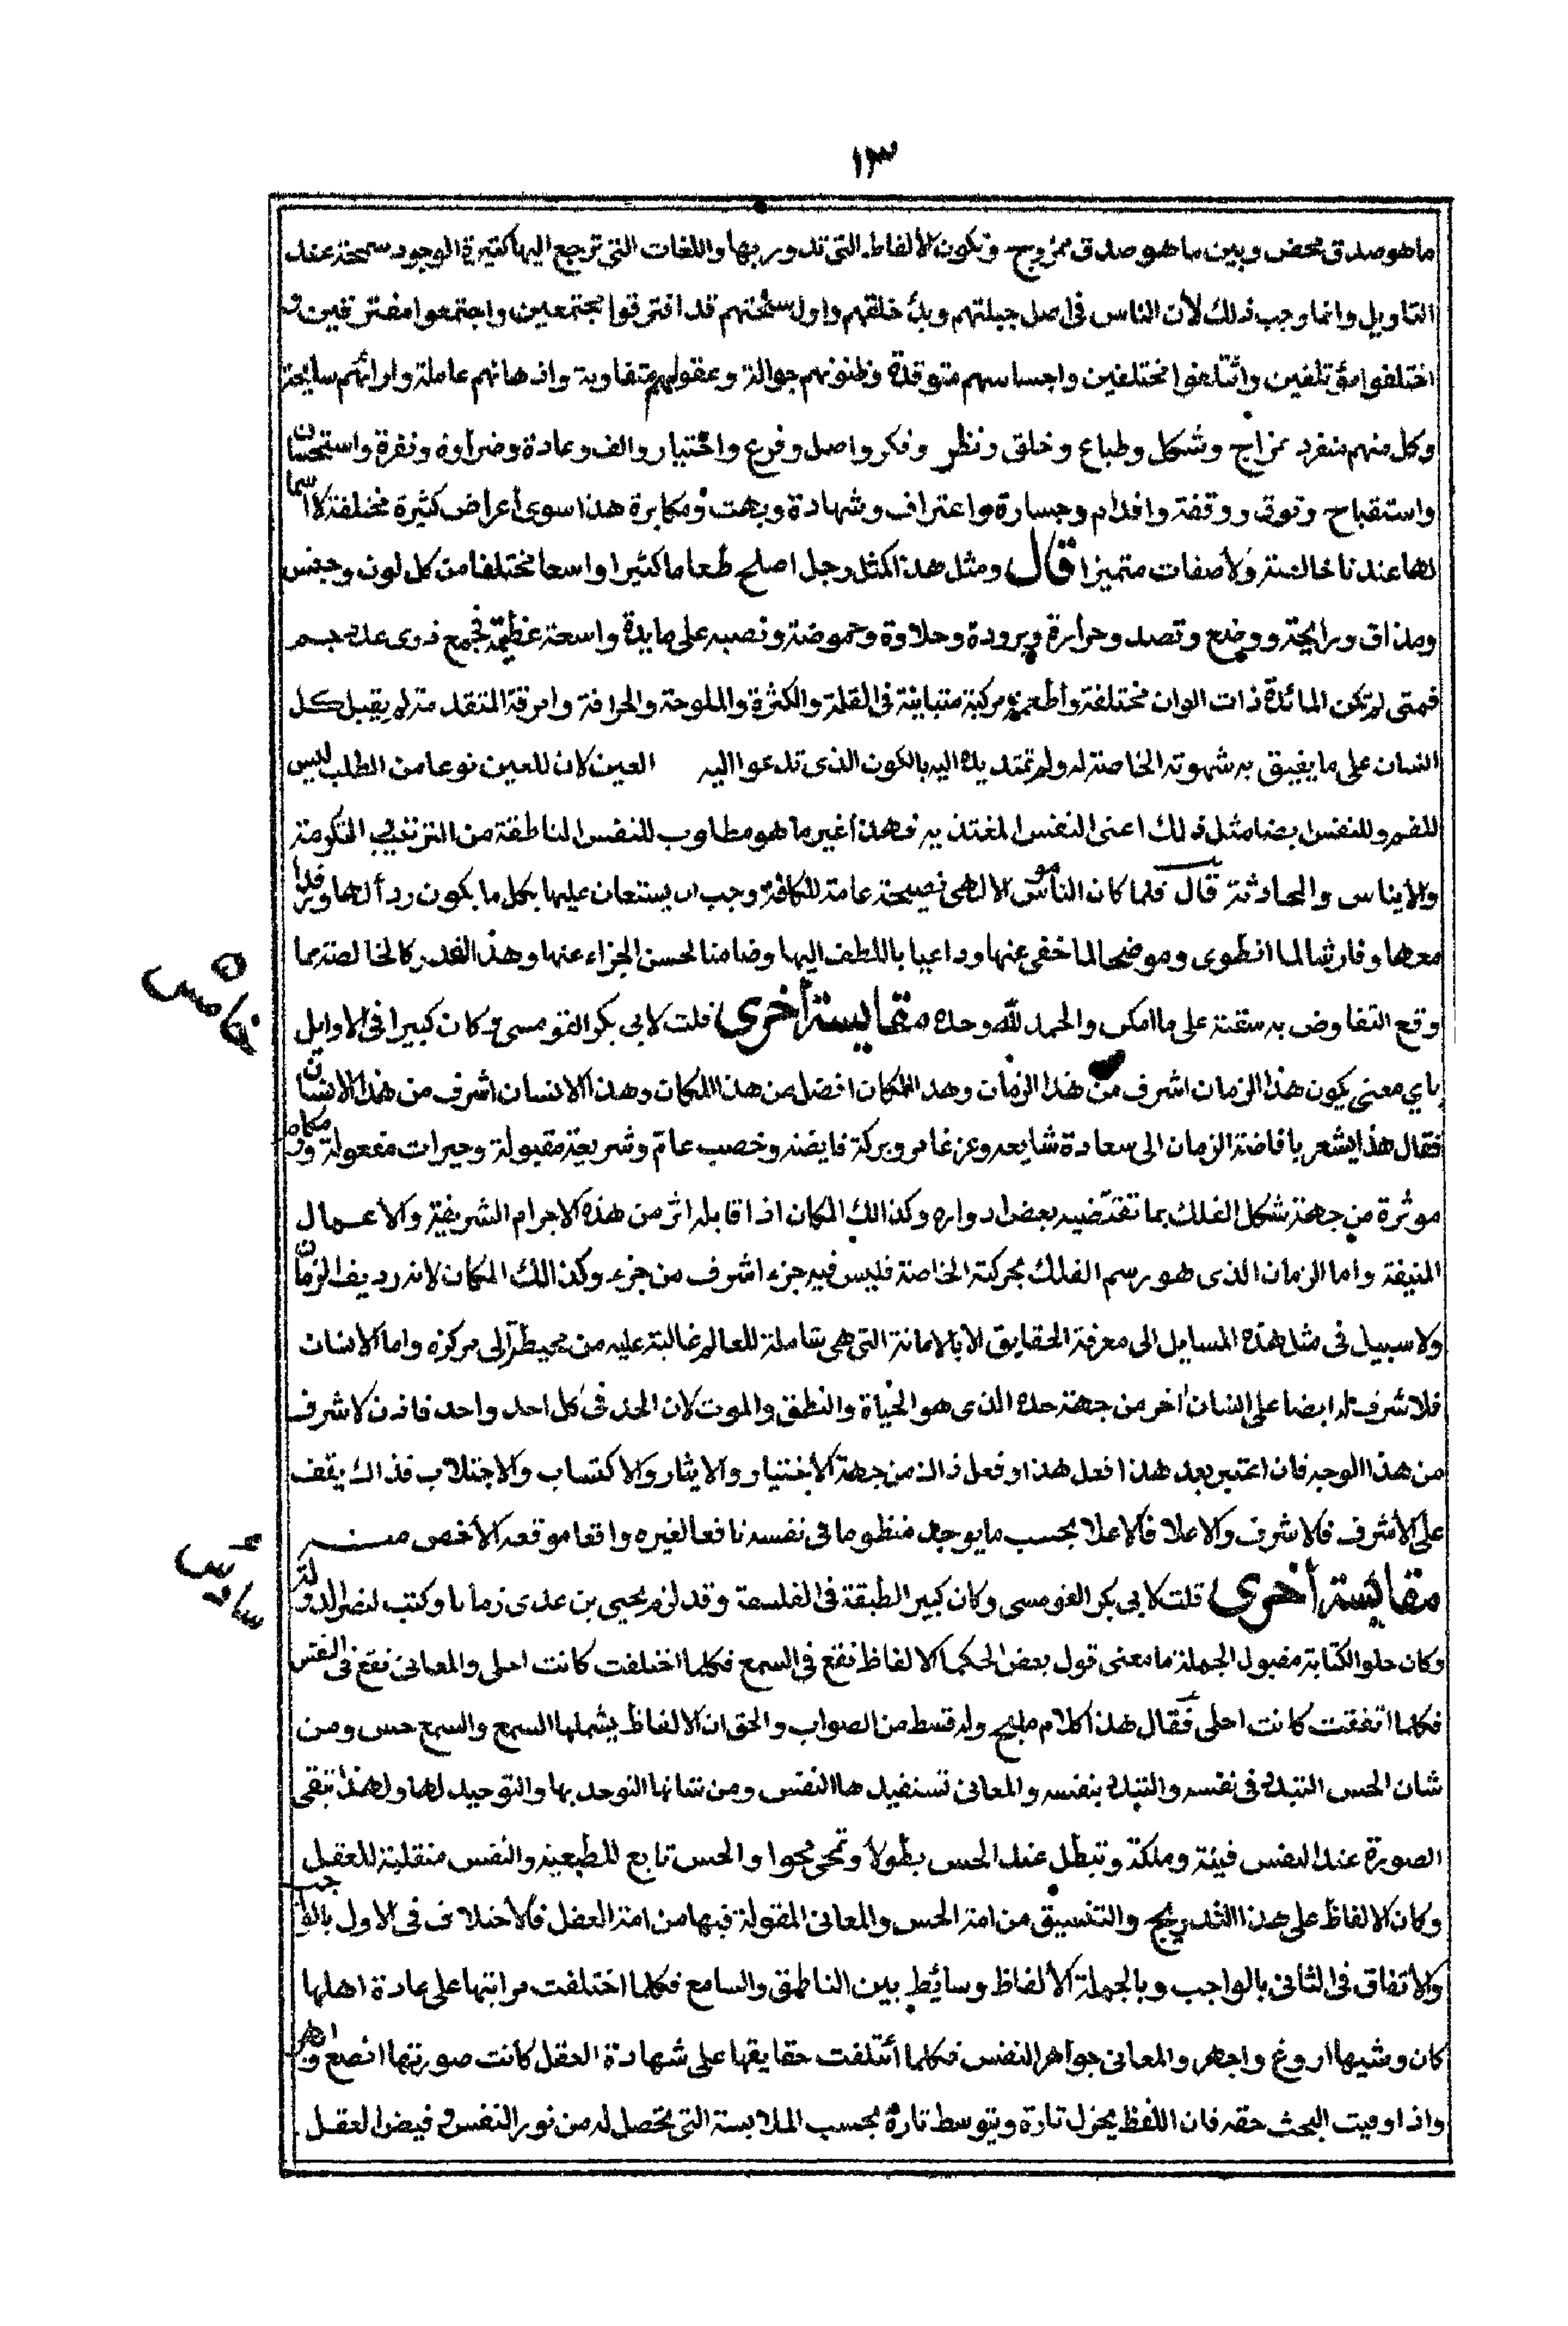 ١٣
ما هو صدق محض وبين ما هو صدق ممزوج وتكون الألفاظ التي تدور بها واللغات التي ترجع اليها كثيرة الوجود سمحة عند
التاويل وانما وجب ذلك لأن الناس في اصل جبلتهم وبدء خلقهم واول سنختهم قد افترقوا مجتمعين واجتمعوا مفترقين و
اختلفوا مؤتلفين وأتلفوا مختلفين واحساسهم متوقدة وظنونهم جوالة وعقولهم متفاوتة واذهانهم عاملة وارائهم سايحة
وكل منهم منفرد بمزاج وشكل وطباع وخلق ونظر وفكر واصل وفرع واختيار والف وعادة وضراوة ونفرة واستحسان
واستقباح وتوق ووقفة واقدام وجسارة واعتراف وشهادة وبهت ومكابرة هذا سوى أعراض كثيرة مختلفة لا اسما
لها عندنا خالصة ولا صفات متميزا قال ومثل هذا كمثل رجل اصلح طعاما كثيرا واسعا مختلفا من كل لون وجنس
ومذاق ورايحة ووضع وتصد وحرارة وبرودة وحلاوة وحموضة ونصبه على مايدة واسعة عظيمة تجمع ذوى عدد جم
فمتى لم تكن المائدة ذات الوان مختلفة وأطعمة مركبة متباينة في القلة والكثرة والملوحة والحرافة وامرقة المتقدمة لم يقبل كل
انسان على ما يفيق به شهوته الخاصة له ولم تمتد يده اليه بالكون الذى تدعوا اليه العين لان للعين نوعا من الطلب ليس
للفم وللنفس ايضا مثل ذلك اعنى النفس المغتذيه فهذا غير ما هو مطلوب للنفس الناطقة من الترتيب التكرمة
والايناس والمحادثة قال فلما كان الناموس الالهي نصيحة عامة للكافة وجب ان يستعان عليها بكل ما يكون ردأ لها ورافدا
معها وفارشا لما انطوى وموضحا لما خفى عنها وداعيا باللطف اليها وضامنا لحسن الجزاء عنها وهذا القدر كالخالصة مما
وقع التفاوض به سقنة على ما امكن والحمد لله وحده مقايسة أخرى قلت لابي بكر القومسي وكان كبيرا في الاوايل
باي معنى يكون هذا الزمان اشرف من هذا الزمان وهذا المكان افضل من هذا المكان وهذا الانسان اشرف من هذا الانسان
فقال هذا يشعر بافاضة الزمان الى سعادة شايعه وعز غامر وبركة فايضه وخصب عام وشريعة مقبولة وخيرات مفعولة ومكارم
موثرة من جهة شكل الفلك بما تقتضيه بعض ادواره وكذالك المكان اذا قابله اثر من هذه الاجرام الشريفة والاعمال
المنيفة واما الزمان الذى هو رسم الفلك بحركته الخاصة فليس فيه جزء اشرف من جزء وكذالك المكان لانه رديف الزمان
ولا سبيل في مثل هذه المسايل الى معرفة الحقايق الا بالامانة التي هي شاملة للعالم غالبة عليه من محيطه الى مركزه واما الانسان
فلا شرف له ايضا على انسان آخر من جهة حده الذى هو الحياة والنطق والموت لان الحد في كل احد واحد فاذن لا شرف
من هذا الوجه فان اعتبر بعد هذا فعل هذا وفعل ذاك من جهة الاختيار والايثار والاكتساب والاجتلاب فذاك يقف
على الاشرف فالاشرف والاعلا فالاعلا بحسب ما يوجد منظوما في نفسه نافعا لغيره واقعا موقعه الأخص منه
مقايسة أخرى قلت لابي بكر القومسي وكان كبير الطبقة في الفلسفة وقد لزم يحيى بن عدى زمانا وكتب لنصر الدولة
وكان حلو الكتابة مقبول الجملة ما معنى قول بعض الحكما الالفاظ تقع في السمع فكلما اختلفت كانت احلى والمعانى تقع في النفس
فكلما اتفقت كانت احلى فقال هذا كلام مليح وله قسط من الصواب والحق ان الالفاظ يشملها السمع والسمع حس ومن
شان الحس التبدد في نفسه والتبدد بنفسه والمعانى تستفيدها النفس ومن شانها التوحد بها والتوحيد لها ولهذا تبقى
الصورة عند النفس فينة وملكة وتبطل عند الحس بطولا وتمحى محوا والحس تابع للطبيعة والنفس متقلبة للعقل
وكان الالفاظ على هذا التدريج والتنسيق من امة الحس والمعانى المقولة فيها من امة العقل فالاختلاف في الاول بالواجب
والاتفاق في الثانى بالواجب وبالجملة الألفاظ وسائط بين الناطق والسامع فكلما اختلفت مراتبها على عادة اهلها
كان وشيها اروع واجهر والمعانى جواهر النفس فكلما أتلفت حقايقها على شهادة العقل كانت صورتها انصع وابهر
واذا وفيت البحث حقه فان اللفظ يجزل تارة ويتوسط تارة بحسب الملابسة التي تحصل له من نور النفس وفيض العقل
خامس
سادس